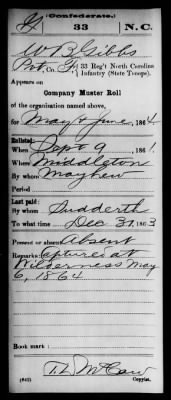 G (Confederate.)
33 N.C.
W. B. Gibbs
Pvt, Co. G, 33 Reg't North Carolina
Infantry (State Troops).
Company Muster Roll
of the organization named above,
for May & June, 1864
Enlisted:
When Sept 9, 1861
Where Middleton
By whom Mayhew
Period
Last paid:
By whom Sudderth
To what time Dec 31, 1863
Present or absent Absent
Remarks: Captured at
Wilderness May
6, 1864
Book mark:
T. L. McCaw
(642) Copyist.